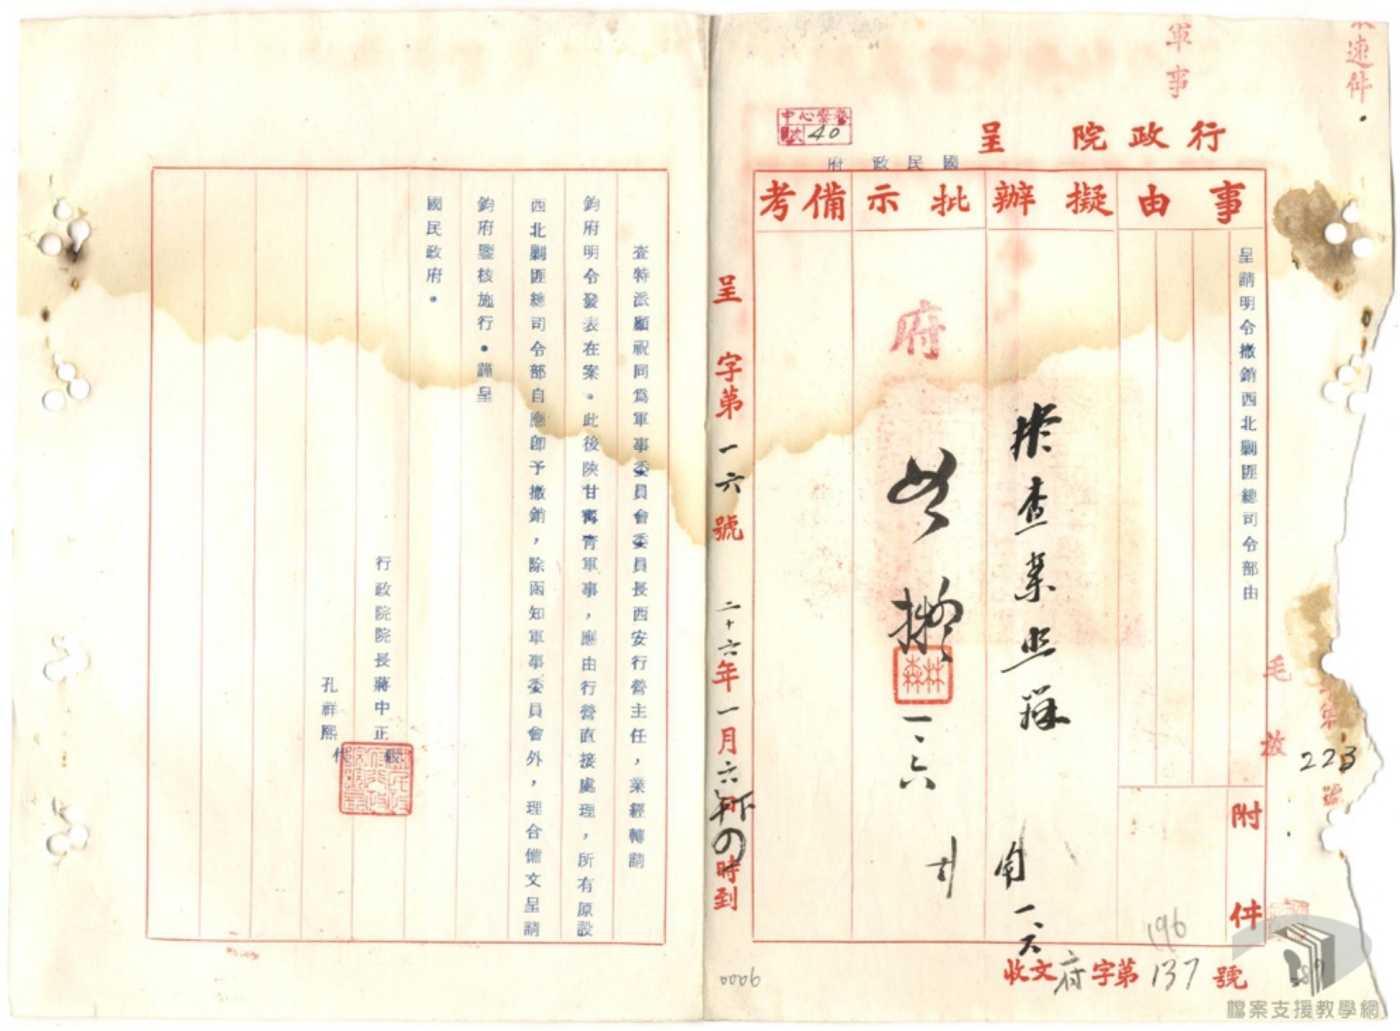 速件
軍事
行政院呈
國民政府
40
事由
擬辦
批示
備考
呈請明令撤銷西北剿匪總司令部由
附件
擬查案照辦
府
如擬
一、六
收文府字第137號
196
223
呈 字第一六號 二十六年一月六日下の時到
查特派顧祝同為軍事委員會委員長西安行營主任，業經轉請
鈞府明令發表在案。此後陝甘寧青軍事，應由行營直接處理，所有原設
西北剿匪總司令部自應即予撤銷，除函知軍事委員會外，理合備文呈請
鈞府鑒核施行。謹呈
國民政府。
行政院院長蔣中正假
孔祥熙代
9000
檔案支援教學網